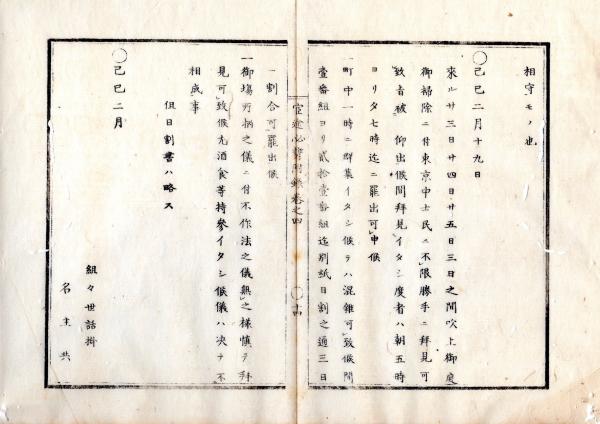 相守モノ也
〇己巳二月十九日
來ル廿三日廿四日廿五日三日之間吹上御庭
御掃除ニ付東京中士民ニ不限勝手ニ拜見可
致旨被 仰出候間拜見イタシ度者ハ朝五時
ヨリタ七時迄ニ罷出可申候
一町中一時ニ群集イタシ候テハ混雜可致候間
壹番組ヨリ貳拾壹番組迄別紙日割之通三日
ニ割合可罷出候
一御場所柄之儀ニ付不作法之儀無之樣愼テ拜
見可致候尤酒食等持參イタシ候儀ハ決テ不
相成事
但日割書ハ略ス
〇己巳二月
組々世話掛
名主共
官途必攜附錄卷之四
〇十四